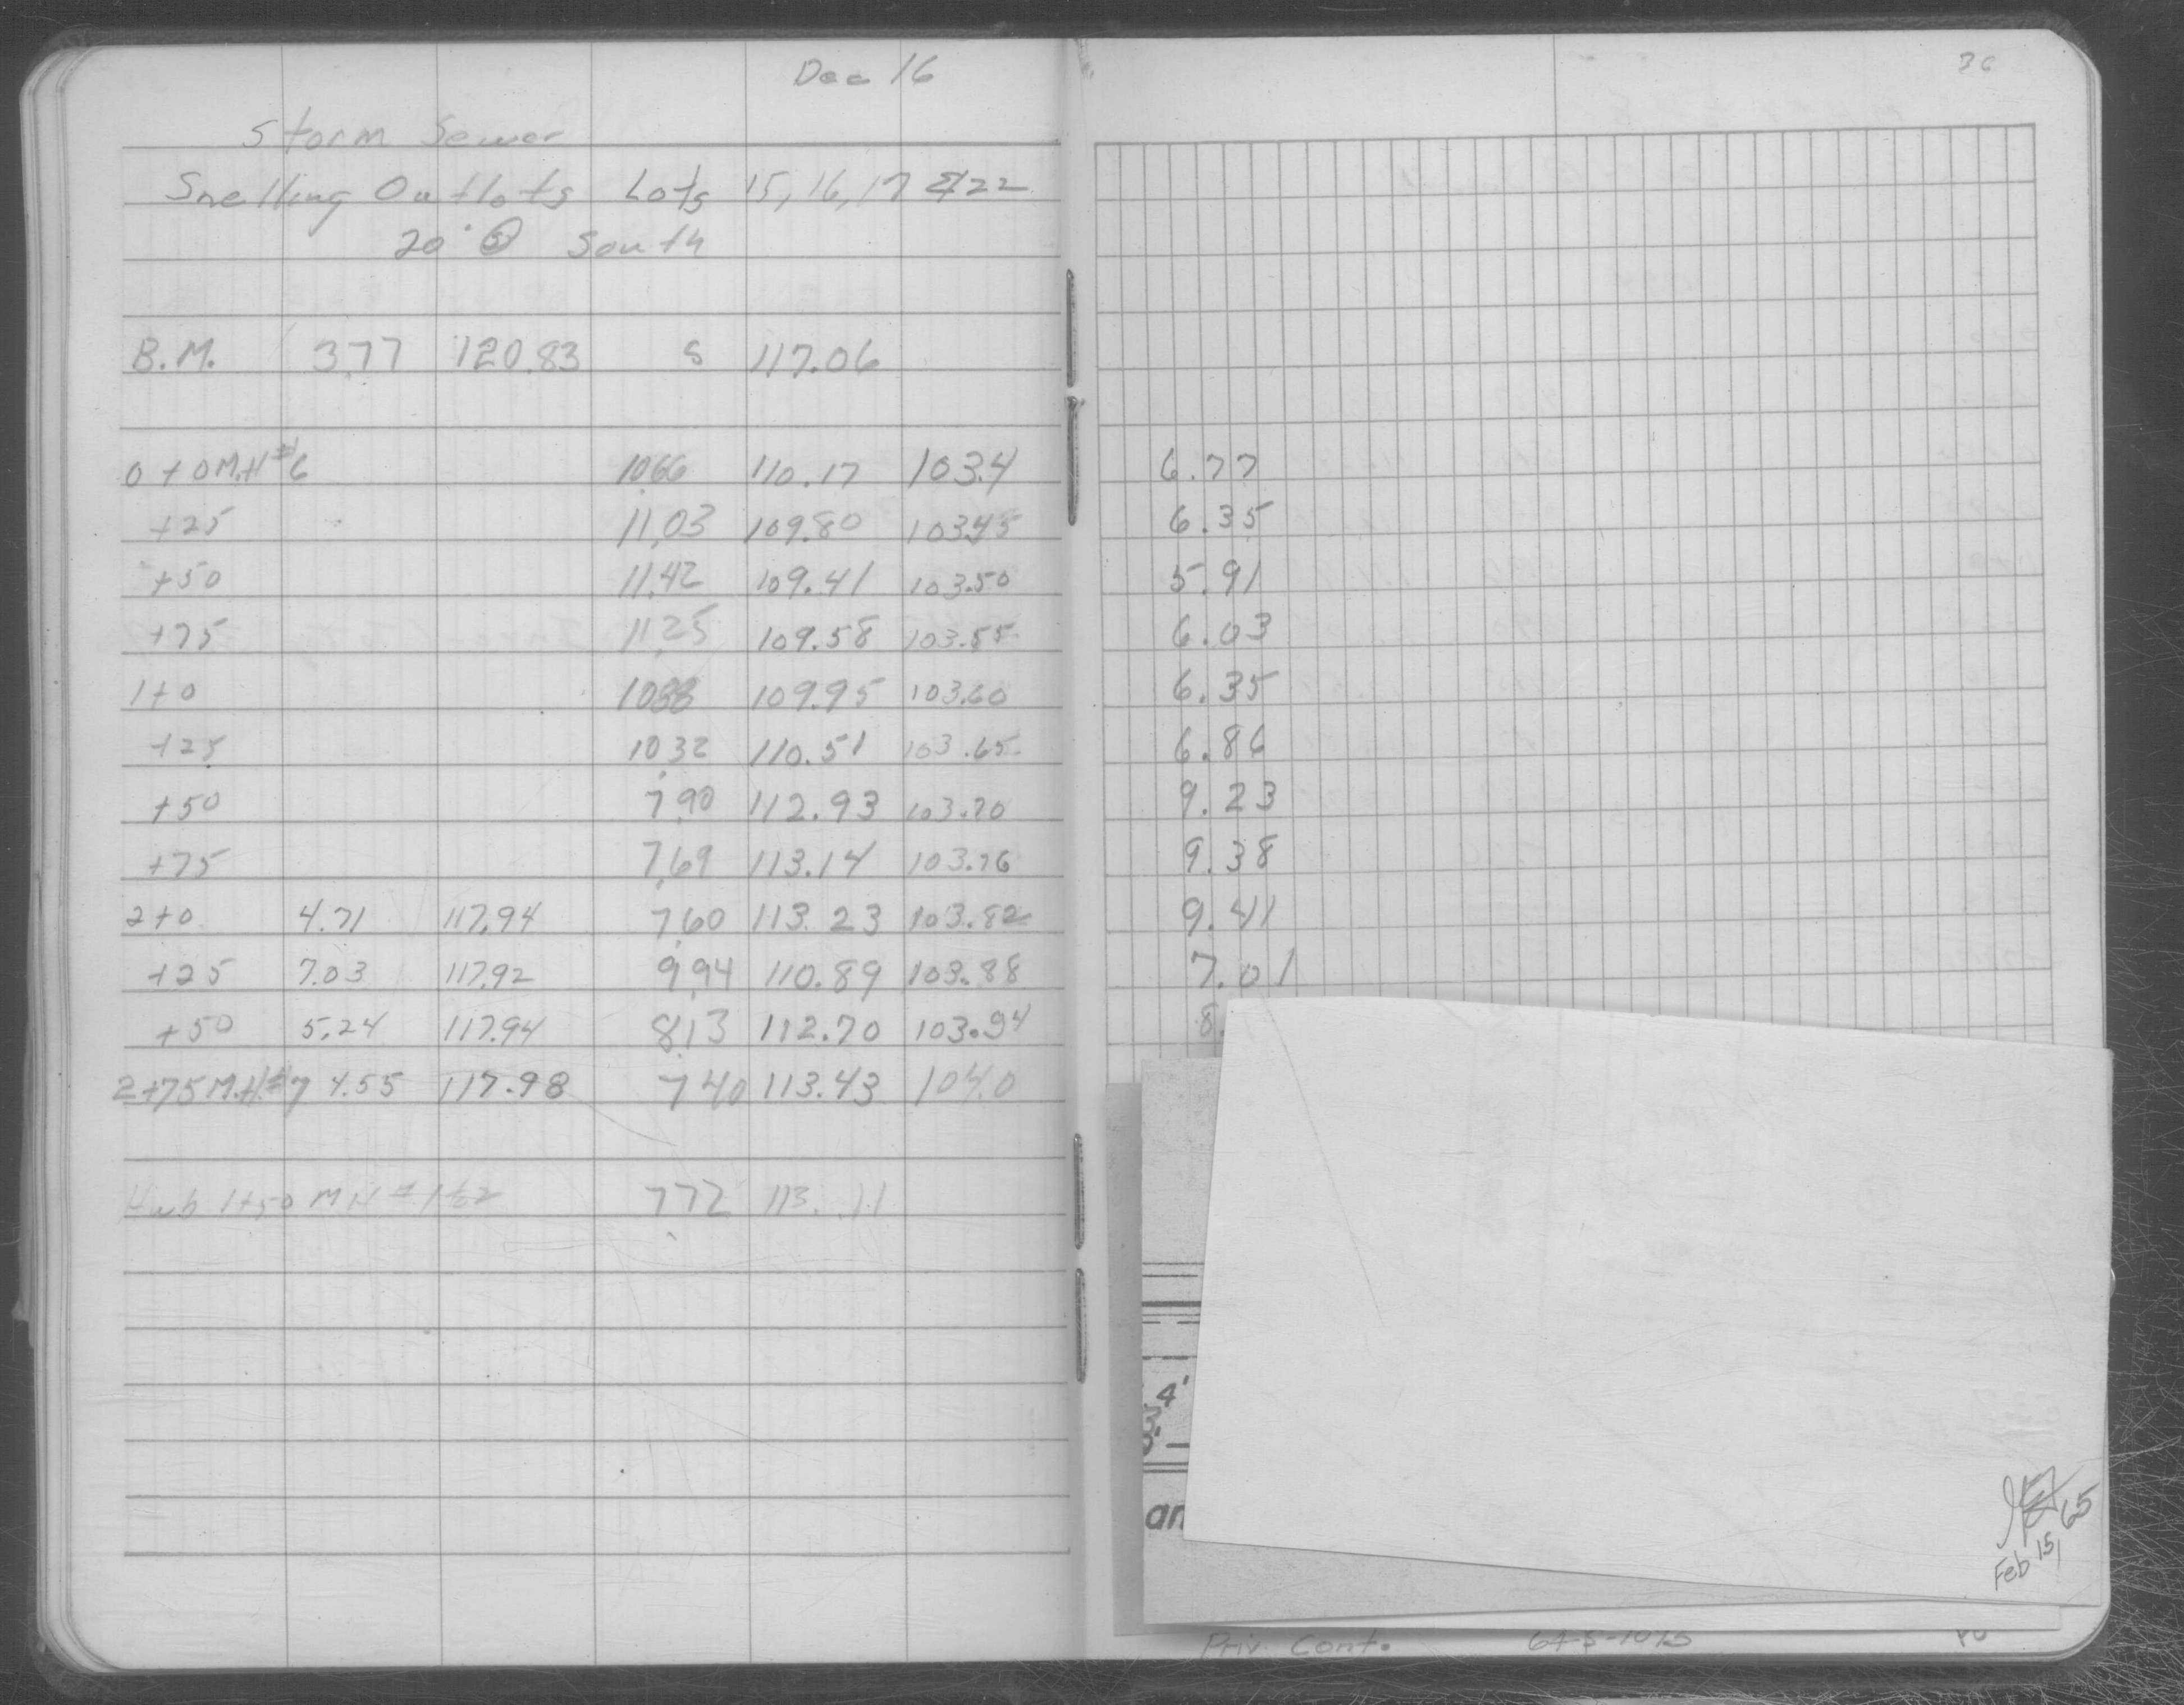 Dec 16
36
Storm Sewer
Snelling Outlots Lots 15, 16, 17 & 22
20' Ⓢ South
B.M. 3.77 120.83 S 117.06
0+0 M.H #6 10.66 110.17 103.4 6.77
+25 11.03 109.80 103.45 6.35
+50 11.42 109.41 103.50 5.91
+75 11.25 109.58 103.55 6.03
1+0 10.88 109.95 103.60 6.35
+25 10.32 110.51 103.65 6.86
+50 7.90 112.93 103.70 9.23
+75 7.69 113.14 103.76 9.38
2+0 4.71 117.94 7.60 113.23 103.82 9.41
+25 7.03 117.92 9.94 110.89 103.88 7.01
+50 5.24 117.94 8.13 112.70 103.94 8.
2+75 M.H.#7 4.55 117.98 7.40 113.43 104.0
Hub 1+50 MH # 1 to 2 7.72 113.11
4'
an
65
Feb 15,
Priv Cont. 64-S-1075